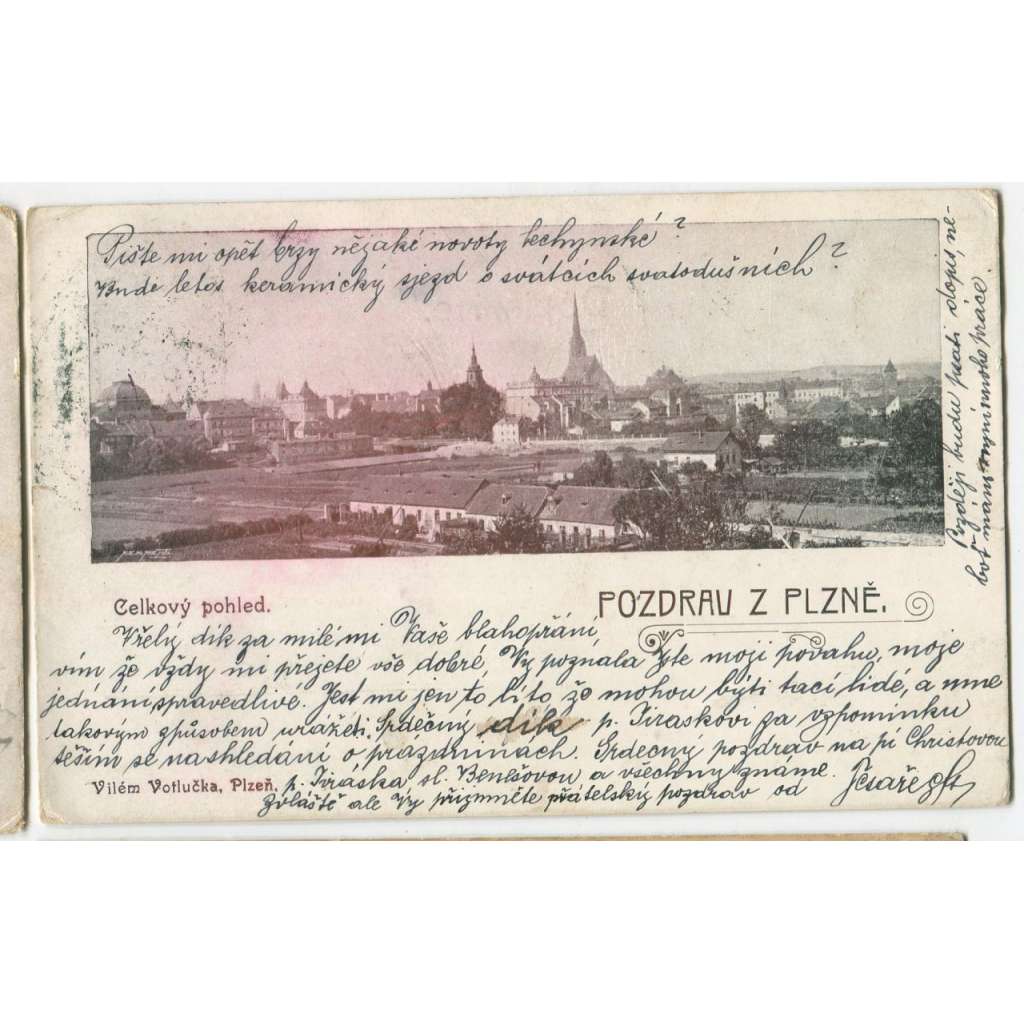 Pište mi opět brzy nějaké novoty bechynské?
Bude letos keramický sjezd o svátcích svatodušních?
Později budu psati dopis, ne-
boť mám nyní mnoho práce
Celkový pohled.
POZDRAV Z PLZNĚ.
Vřelý dík za milé mi Vaše blahopřání,
vím že vždy mi přejete vše dobré Vy poznala jste moji povahu, moje
jednání spravedlivé. Jest mi jen to líto že mohou býti tací lidé, a mne
takovým způsobem urážeti. Srdečný dík p. Jiraskovi za vzpomínku
těším se na shledání o prazdninách. Srdecný pozdrav na pí Christovou
p. Jiráska sl. Benešovou a všechny známé.
Vilém Votlučka, Plzeň.
Zvláště ale Vy přijmněte přátelský pozdrav od